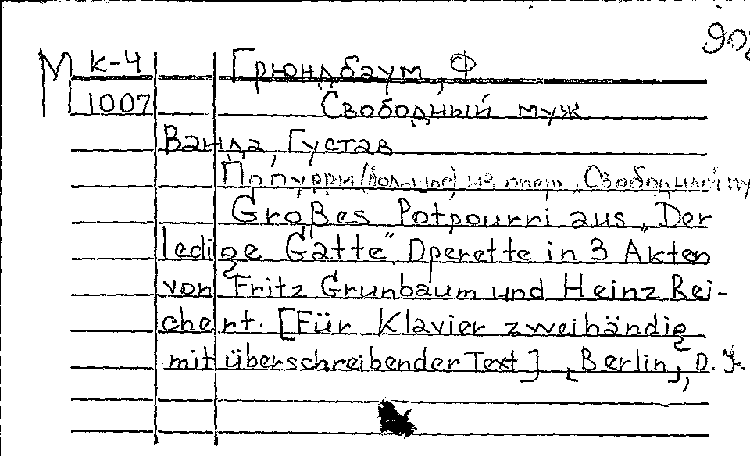 908
М к-4 Грюндбаум, Ф
1007 Свободный муж
Ванда, Густав
Попурри (большое) из опер. „Свободный му
Großes Potpourri aus „Der
ledige Gatte“, Operette in 3 Akten
von Fritz Grunbaum und Heinz Rei-
chert. [Für Klavier zweihändig
mit überschreibender Text]. [Berlin], o. J.